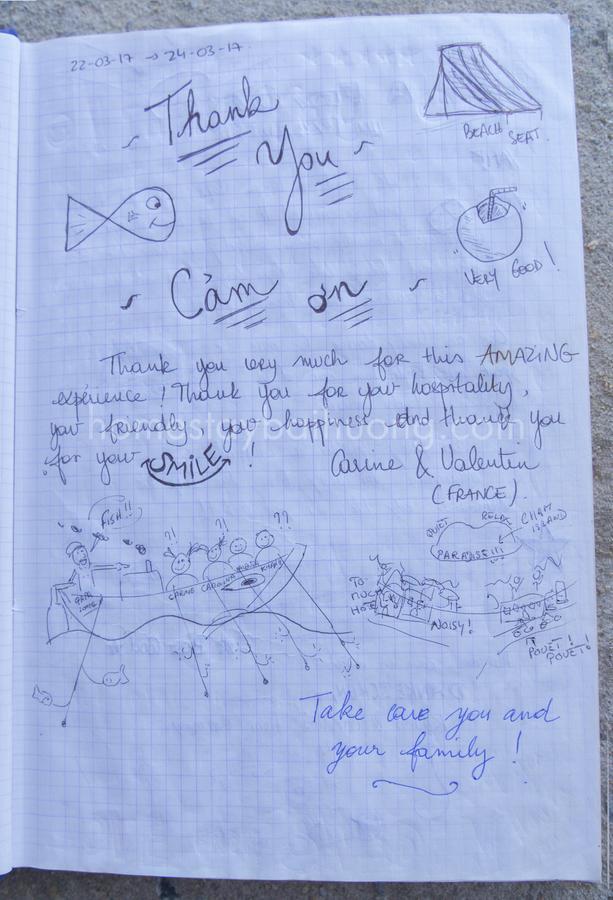 22-03-17 → 24-03-17
~ Thank
You ~
BEACH SEAT.
VERY GOOD!
~ Cảm ơn ~
Thank you very much for this AMAZING
expérience ! Thank you for your hospitality,
your friendly, your happiness and thank you
for your SMILE !
homestaybaihuong.com
Carine & Valentin
(FRANCE).
FISH!!
?!
??
?!
??
CARINE
QUIET
RELAX
CHAM
ISLAND
PARADISE!!!
TO
MUCH
HOTEL
NOISY!
POUET!
POUET!
Take care you and
your family !